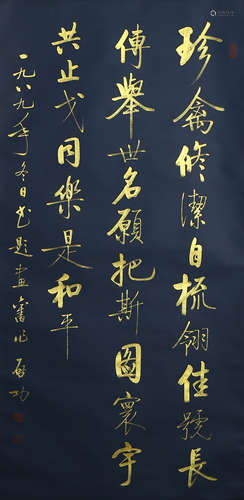 珍禽修潔自梳翎佳號長
傳舉世名願把斯圖寰宇
共止戈同樂是和平
一九八九年冬日書題畫舊作 啟功